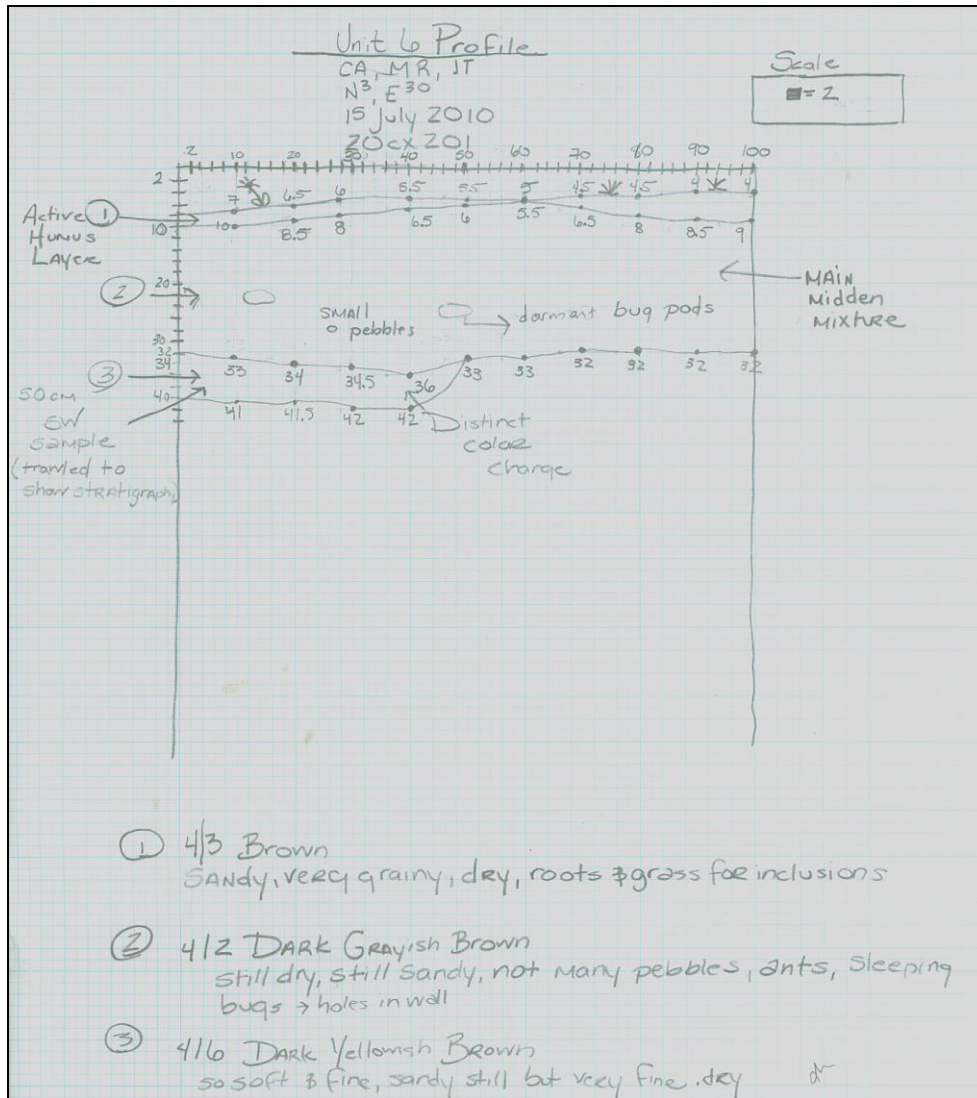 Unit 6 Profile
CA, MR, JT
N3, E30
15 July 2010
20cx 201
Scale
= 2
2 10 20 30 40 50 60 70 80 90 100
2
7 6.5 6 5.5 5.5 5 4.5 4.5 4 4
Active ①
Humus
Layer
10
10 8.5 8 6.5 6 5.5 6.5 8 8.5 9
②
20
MAIN
Midden
Mixture
SMALL
pebbles
dormant bug pods
30
32
34
③
33 34 34.5 36 33 33 32 32 32 32
40
41 41.5 42 42
50cm
SW
sample
(troweled to
show stratigraph)
Distinct
color
change
① 4/3 Brown
Sandy, very grainy, dry, roots & grass for inclusions
② 4/2 Dark Grayish Brown
still dry, still sandy, not many pebbles, ants, sleeping
bugs → holes in wall
③ 4/6 Dark Yellowish Brown
so soft & fine, sandy still but very fine. dry